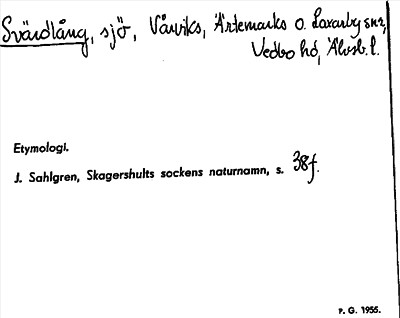 Svärdlång, sjö, Vårviks, Ärtemarks o. Laxarby snr,
Vedbo hd, Älvsb. l.
Etymologi.
J. Sahlgren, Skagershults sockens naturnamn, s. 38f.
P. G. 1955.